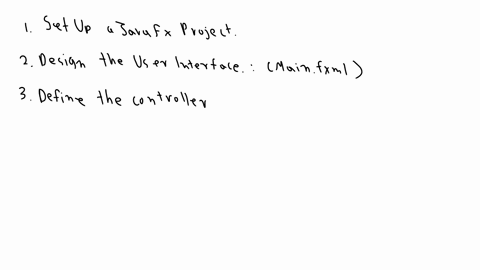 1. Set Up a JavaFx Project.
2. Design the User Interface.: (Main.fxml)
3. Define the controller